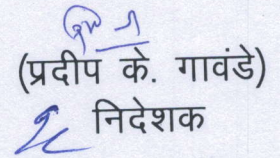 (प्रदीप के. गावंडे)
निदेशक